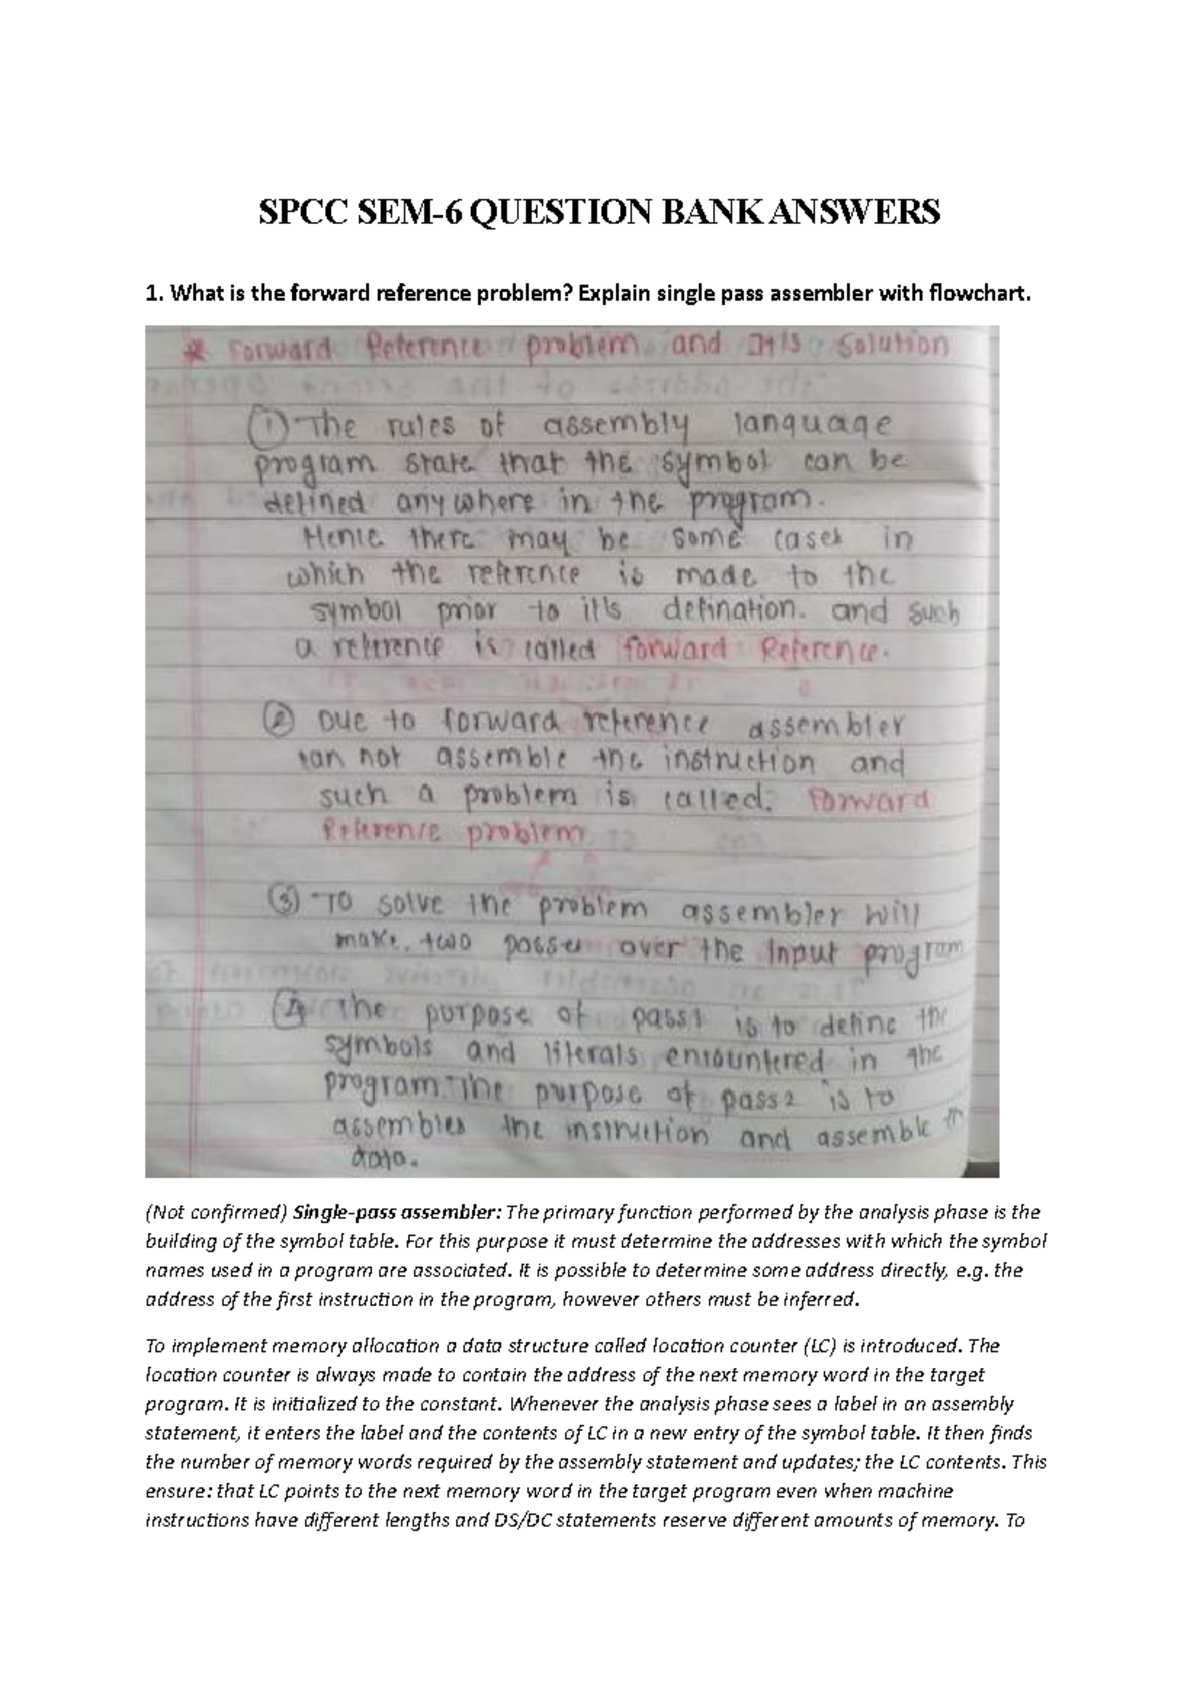 SPCC SEM-6 QUESTION BANK ANSWERS
1. What is the forward reference problem? Explain single pass assembler with flowchart.
* Forward Reference problem and It's Solution
① The rules of assembly language
program state that the symbol can be
defined anywhere in the program.
Hence there may be some cases in
which the reference is made to the
symbol prior to it's defination. and such
a reference is called forward Reference.
② Due to forward reference assembler
can not assemble the instruction and
such a problem is called. Forward
Reference problem
③ To solve the problem assembler will
make two passes over the Input program
④ The purpose of pass1 is to define the
symbols and literals encountered in the
program. The purpose of pass2 is to
assembles the instruction and assemble th
data.
(Not confirmed) Single-pass assembler: The primary function performed by the analysis phase is the
building of the symbol table. For this purpose it must determine the addresses with which the symbol
names used in a program are associated. It is possible to determine some address directly, e.g. the
address of the first instruction in the program, however others must be inferred.
To implement memory allocation a data structure called location counter (LC) is introduced. The
location counter is always made to contain the address of the next memory word in the target
program. It is initialized to the constant. Whenever the analysis phase sees a label in an assembly
statement, it enters the label and the contents of LC in a new entry of the symbol table. It then finds
the number of memory words required by the assembly statement and updates; the LC contents. This
ensure: that LC points to the next memory word in the target program even when machine
instructions have different lengths and DS/DC statements reserve different amounts of memory. To